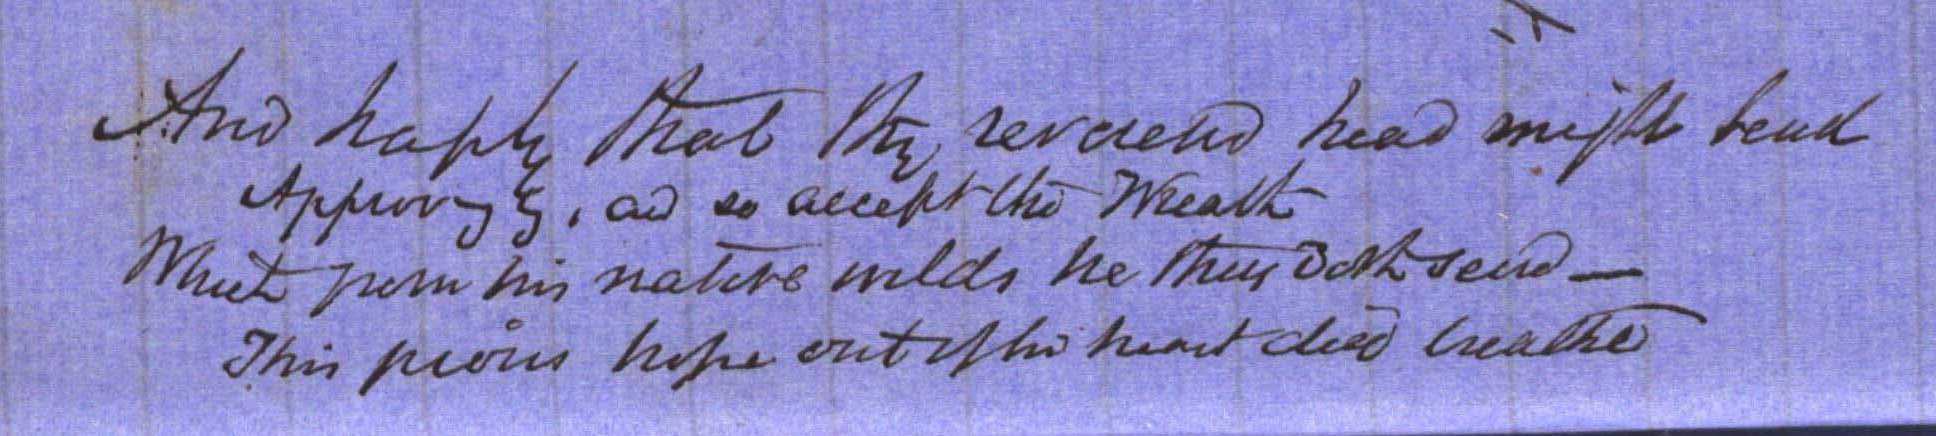 And haply that thy reverend head might bend
Approvingly, and so accept the Wreath
Which from his native wilds he thus doth send —
This pious hope out of his heart did breathe